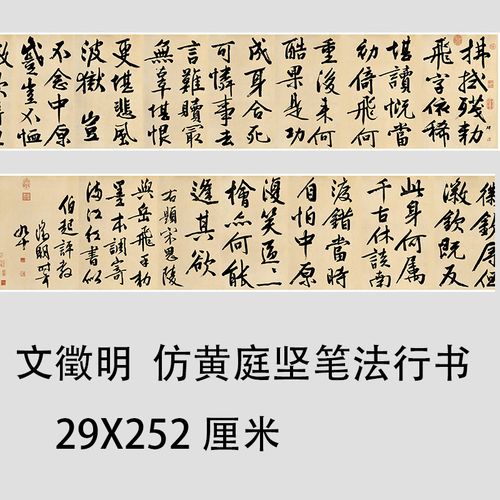 拂拭殘勅
飛字依稀
堪讀慨當
初倚飛何
重後來何
酷果是功
成身合死
可憐事去
言難贖最
無辜堪恨
更堪悲風
波獄豈
不念中原
蹙豈不恤
徽欽辱但
徽欽既反
此身何屬
千古休談南
渡錯當時
自怕中原
復笑區〻
檜亦何能
逢其欲
右題宋思陵
與岳飛手勅
墨本調寄
滿江紅書似
伯起評教
徵明
文徵明 仿黄庭坚笔法行书
29X252 厘米